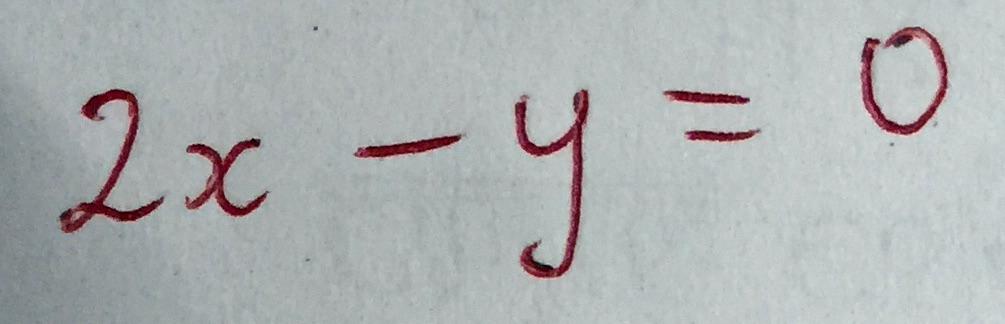 2x - y = 0